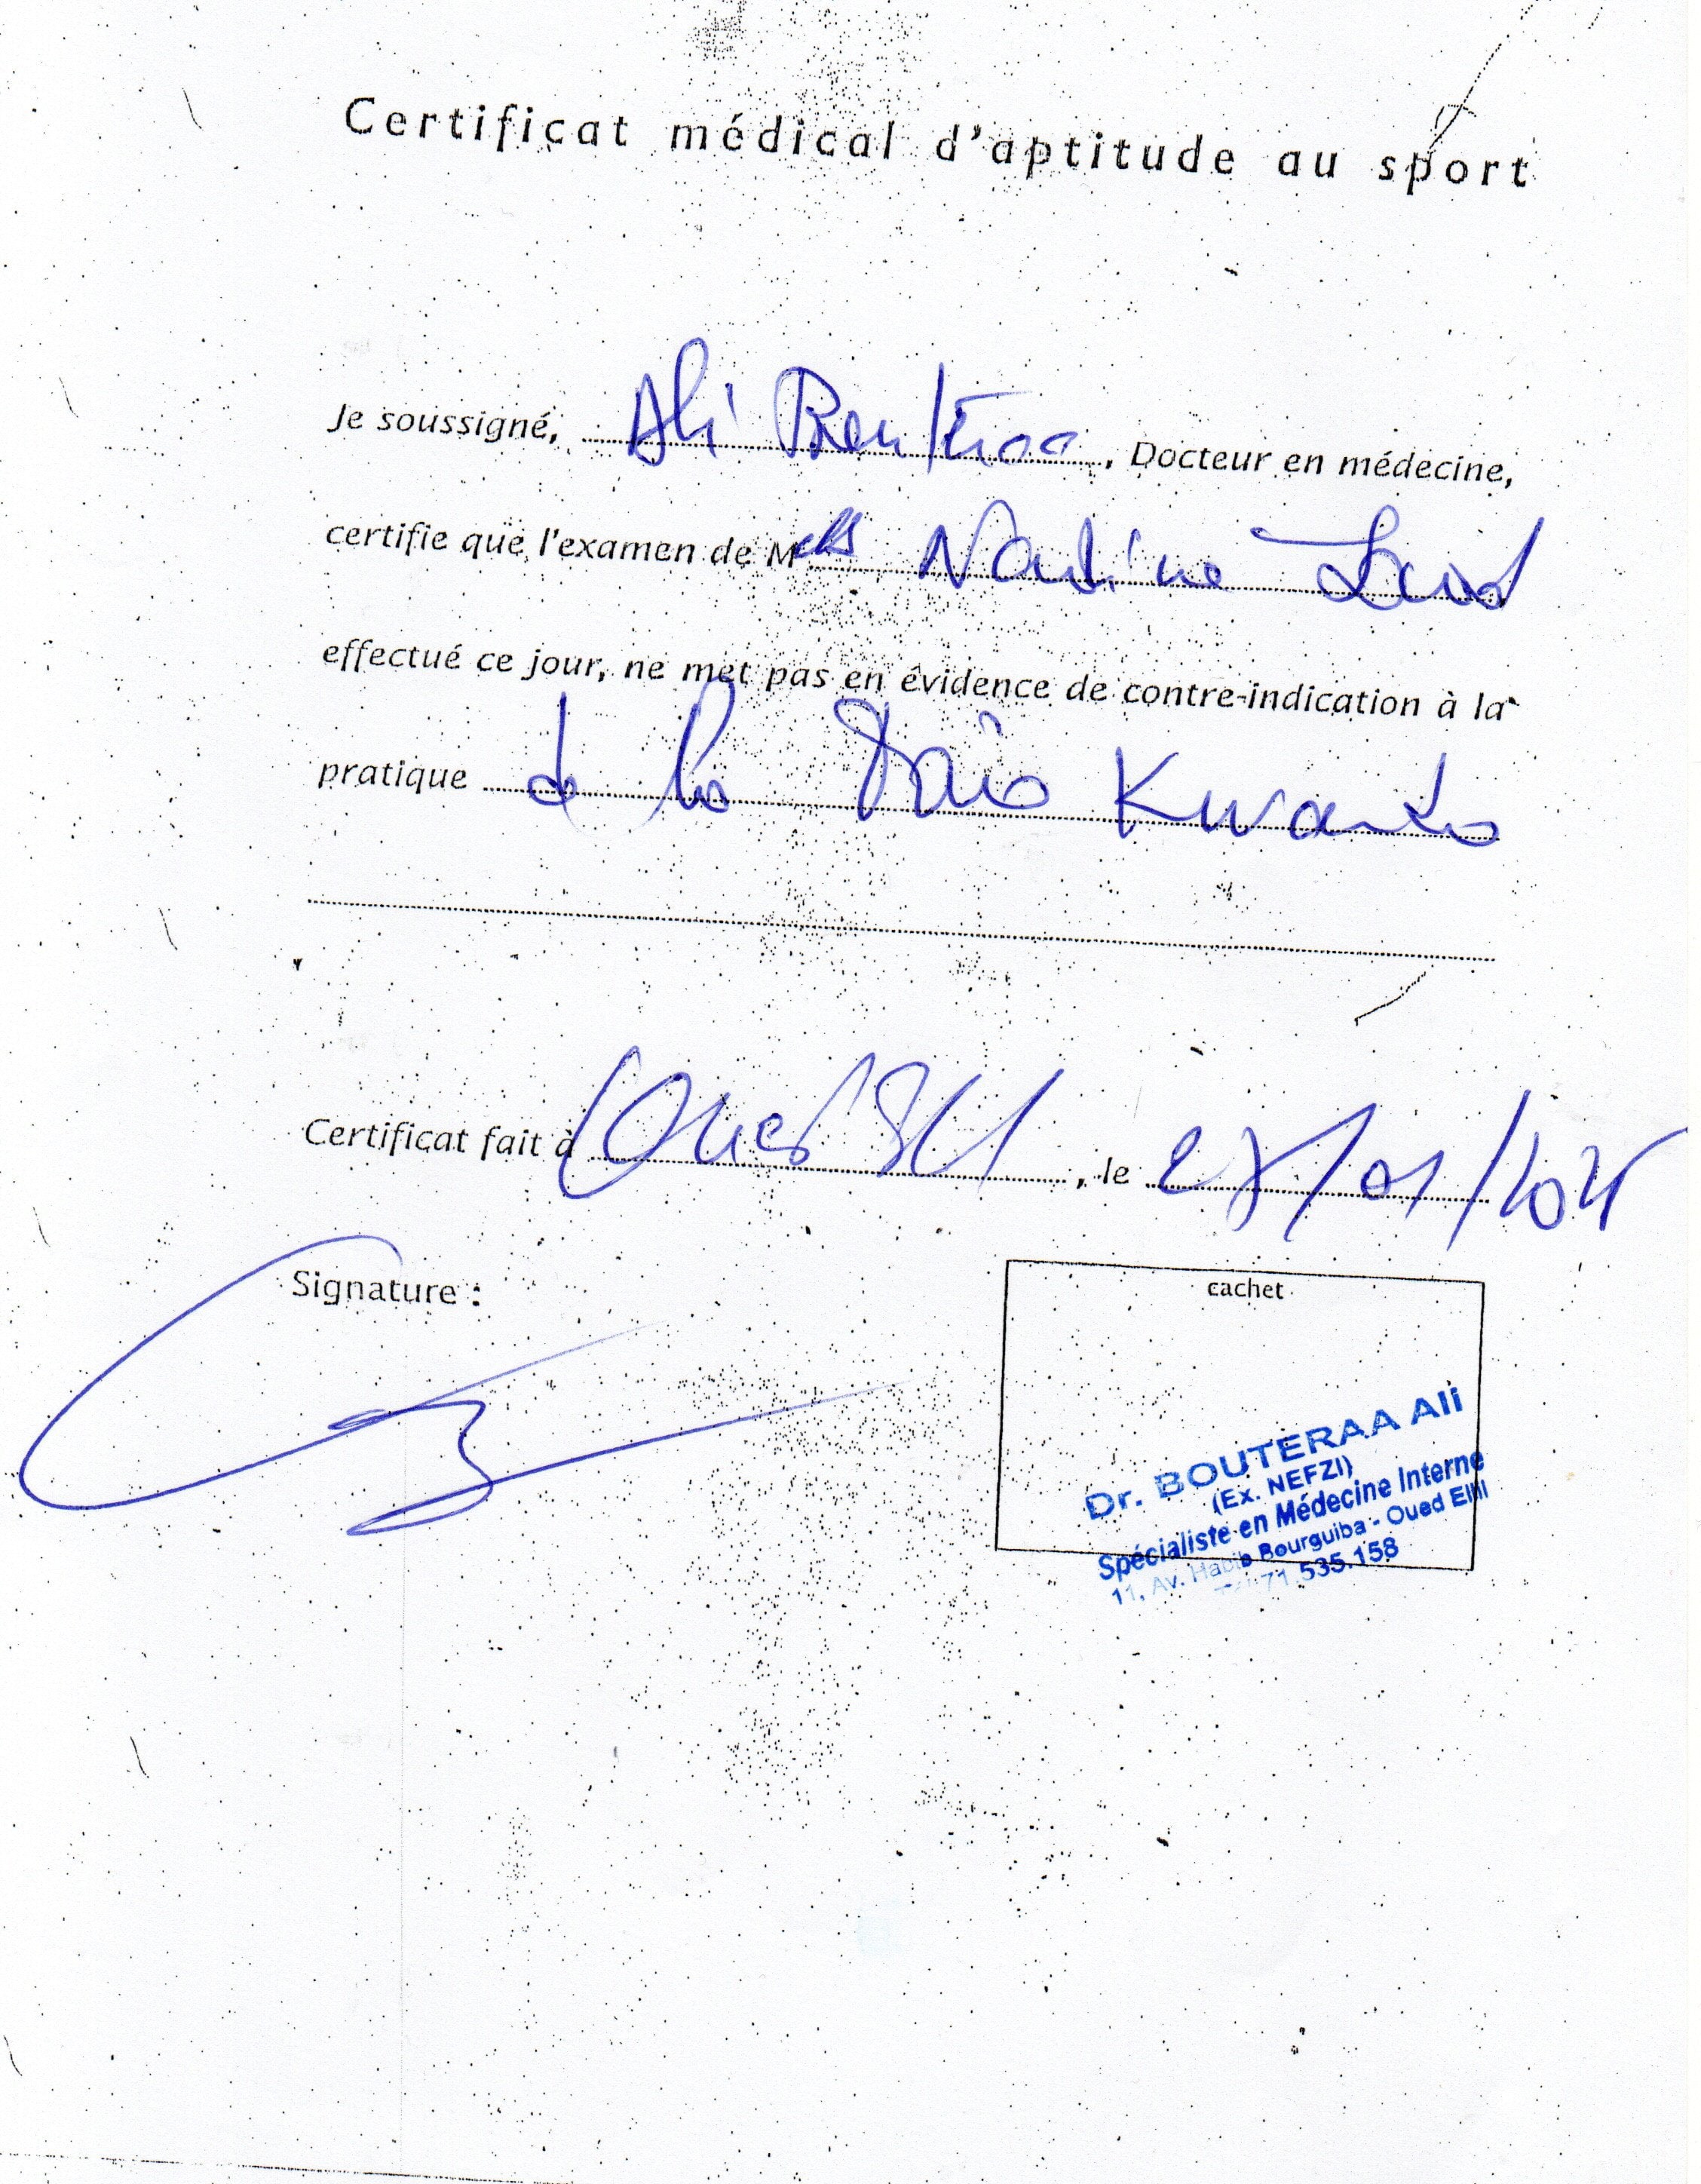 Certificat médical d'aptitude au sport
Je soussigné, Ali Bouteraa, Docteur en médecine,
certifie que l'examen de Melle
effectué ce jour, ne met pas en évidence de contre-indication à la
pratique de la Kwando
Certificat fait à Oued Ellil, le /01/
Signature :
cachet
Dr. BOUTERAA Ali
(Ex. NEFZI)
Spécialiste en Médecine Interne
11, Av. Habib Bourguiba - Oued Ellil
Tél: 71.535.158